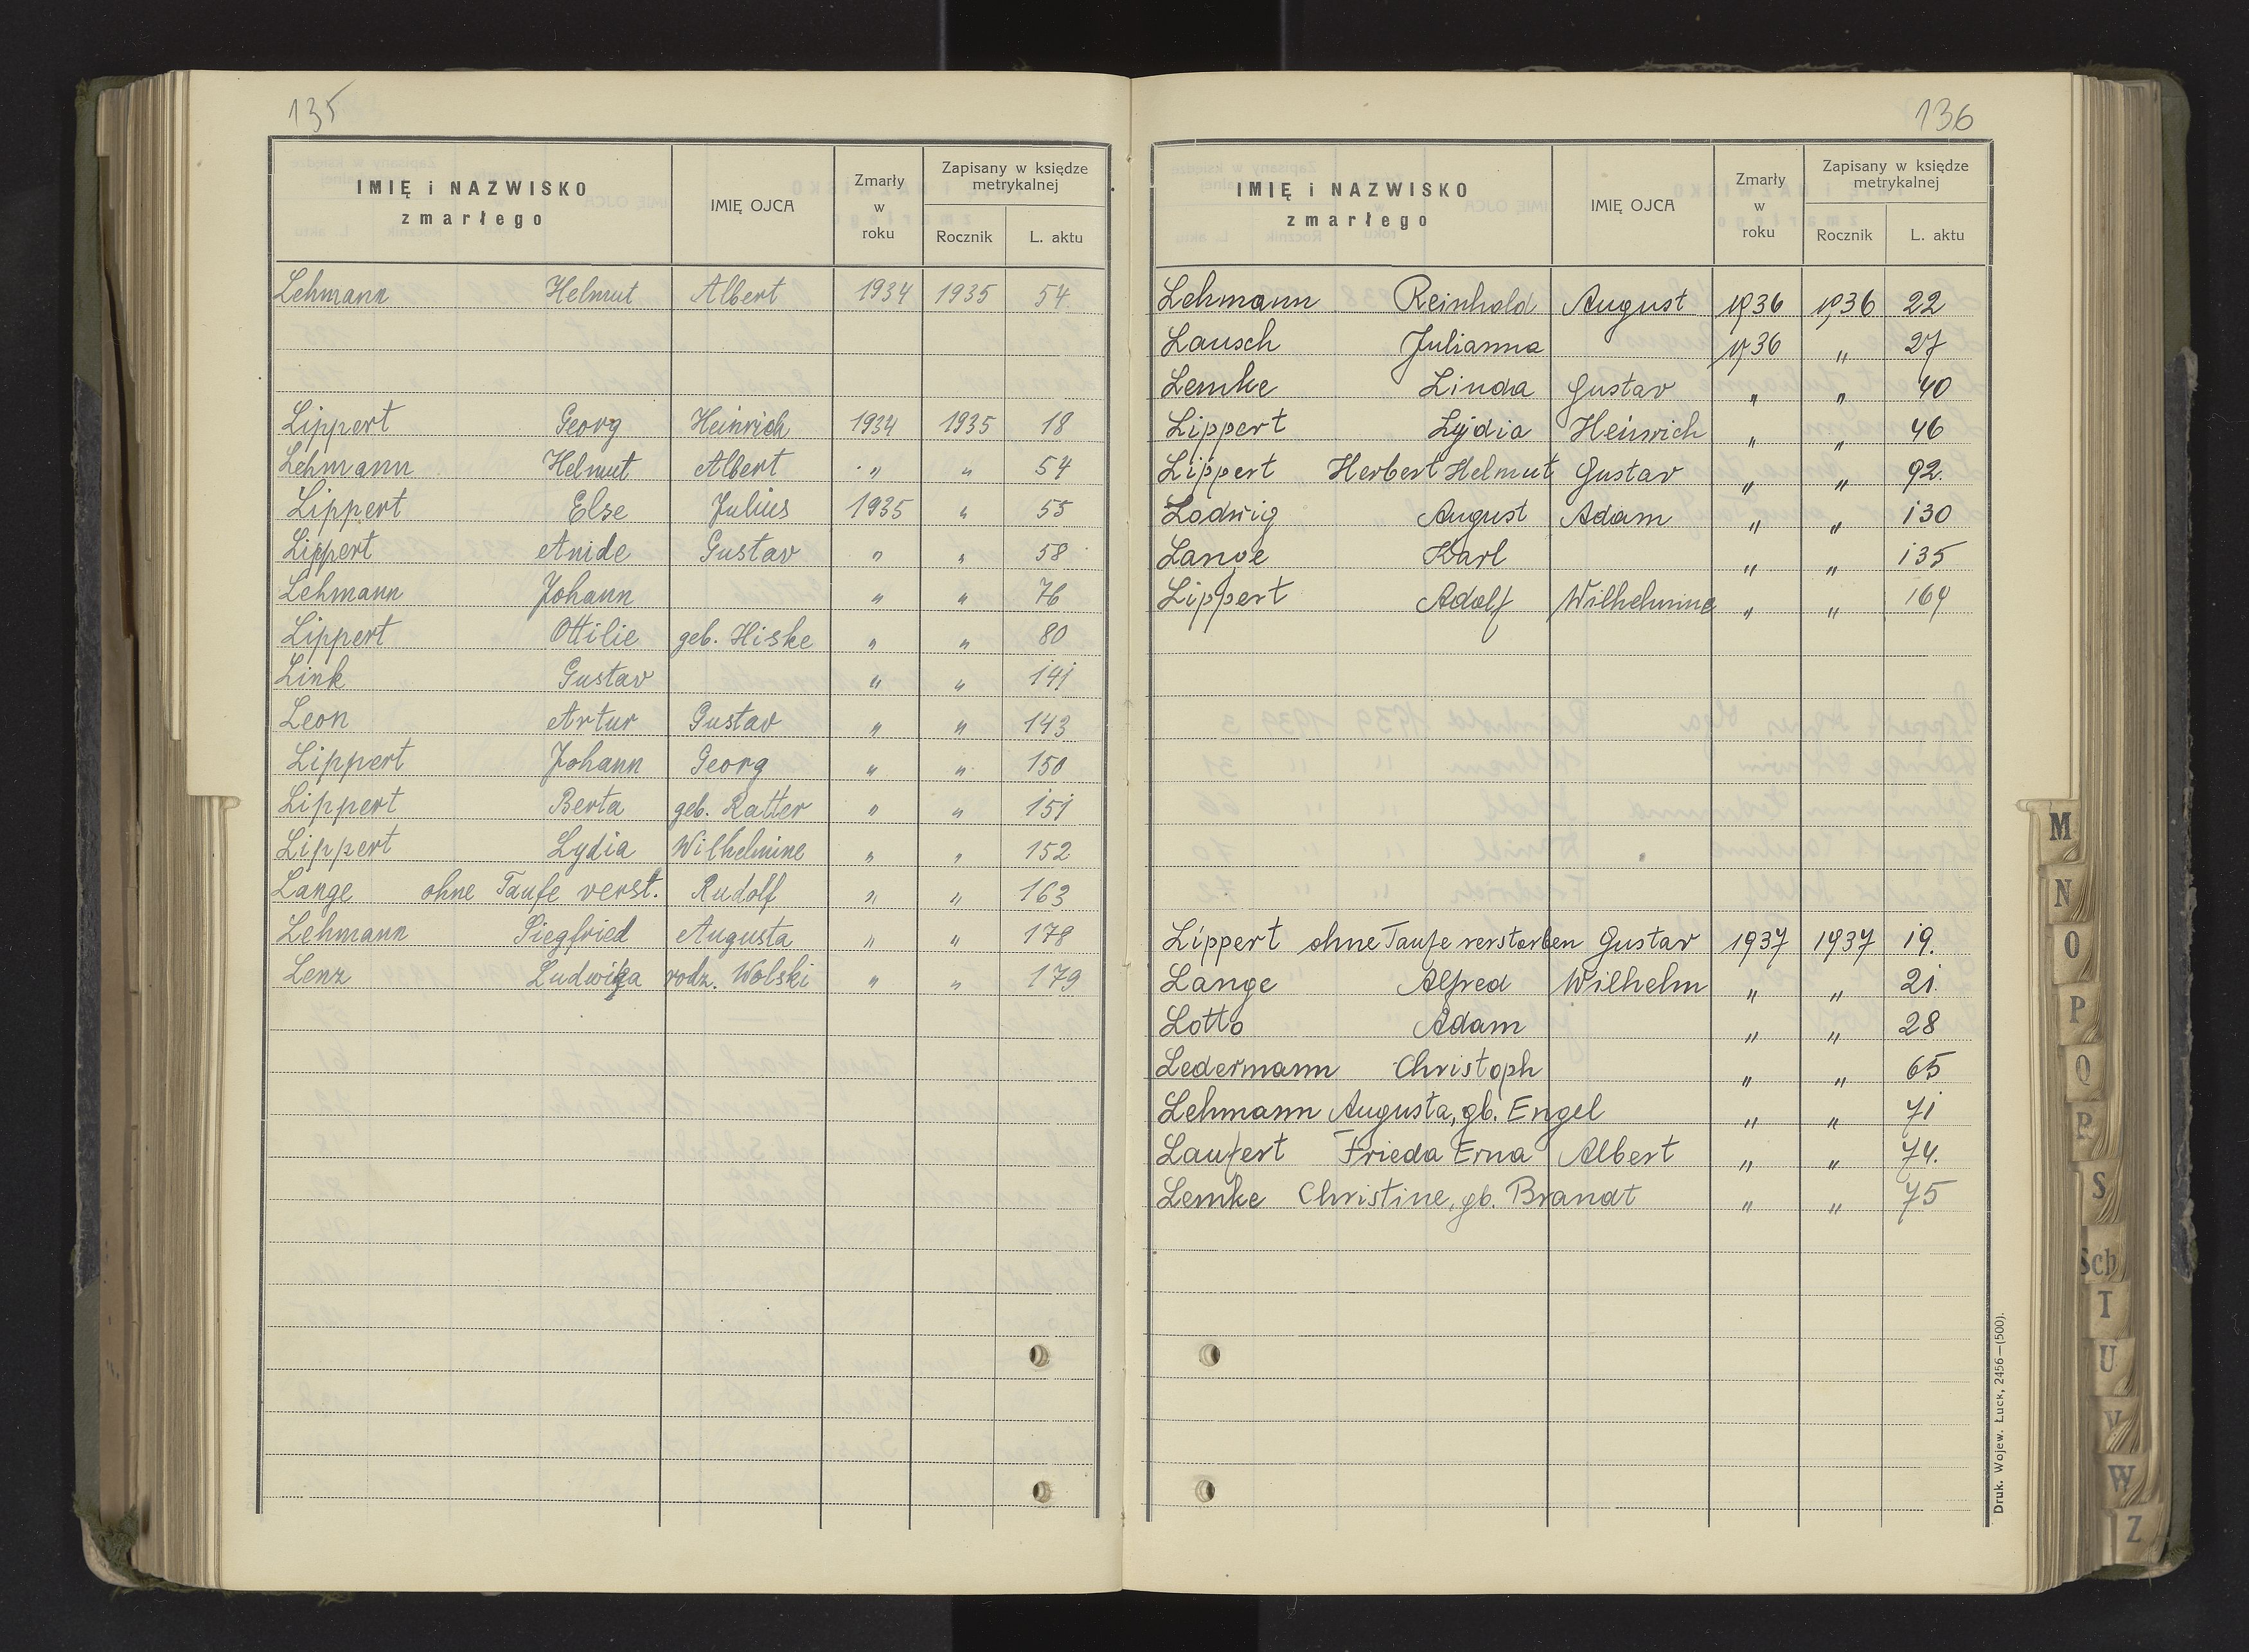 135
IMIĘ i NAZWISKO zmarłego IMIĘ OJCA Zmarły w roku Zapisany w księdze metrykalnej Rocznik L. aktu
Lehmann Helmut Albert 1934 1935 54
Lippert Georg Heinrich 1934 1935 18
Lehmann Helmut Albert " " 54
Lippert Else Julius 1935 " 55
Lippert Anide Gustav " " 58
Lehmann Johann " " 76
Lippert Ottilie geb. Hiske " " 80
Link Gustav " " 141
Leon Artur Gustav " " 143
Lippert Johann Georg " " 150
Lippert Berta geb. Ratter " " 151
Lippert Lydia Wilhelmine " " 152
Lange ohne Taufe verst. Rudolf " " 163
Lehmann Siegfried Augusta " " 178
Lenz Ludwika rodz. Wolski " " 179
136
IMIĘ i NAZWISKO zmarłego IMIĘ OJCA Zmarły w roku Zapisany w księdze metrykalnej Rocznik L. aktu
Lehmann Reinhold August 1936 1936 22
Lausch Julianna 1936 " 27
Lemke Linda Gustav " " 40
Lippert Lydia Heinrich " " 46
Lippert Herbert Helmut Gustav " " 92.
Lodwig August Adam " " 130
Lange Karl " " 135
Lippert Adolf Wilhelmine " " 164
Lippert ohne Taufe verstorben Gustav 1937 1937 19.
Lange Alfred Wilhelm " " 21.
Lotto Adam " " 28
Ledermann Christoph " " 65
Lehmann Augusta, gb. Engel " " 71
Laufert Frieda Erna Albert " " 74.
Lemke Christine, gb. Brandt " " 75
Druk. Wojew. Łuck, 2456—(500).
M
N
O
P
Q
R
S
Sch
T
U
V
W
Z